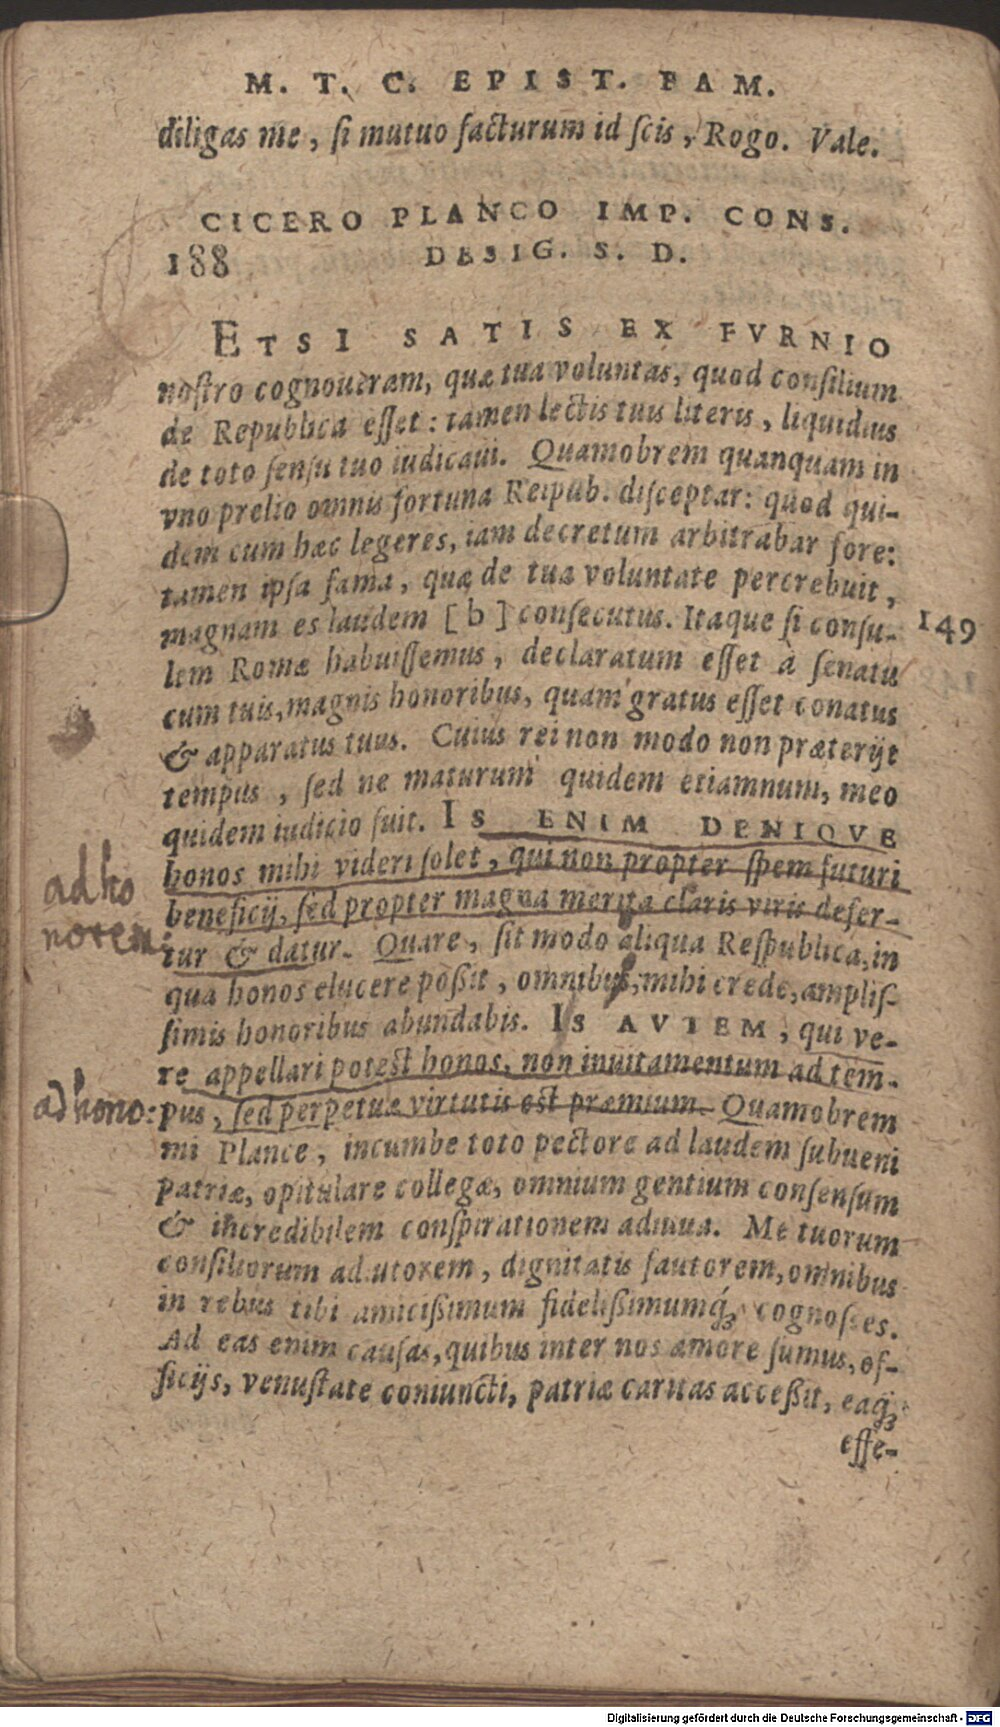 M. T. C. EPIST. FAM.
diligas me, ſi mutuo facturum id ſcis, Rogo. Vale.
CICERO PLANCO IMP. CONS.
188 DESIG. S. D.
ETSI SATIS EX FVRNIO
noſtro cognoueram, quæ tua voluntas, quod conſilium
de Republica eſſet: tamen lectis tuis literis, liquidius
de toto ſenſu tuo iudicaui. Quamobrem quanquam in
vno prelio omnis fortuna Reipub. diſceptar: quod qui-
dem cum hæc legeres, iam decretum arbitrabar fore:
tamen ipſa fama, quæ de tua voluntate percrebuit,
magnam es laudem [b] conſecutus. Itaque ſi conſu- 149
lem Romæ habuiſſemus, declaratum eſſet à ſenatu
cum tuis, magnis honoribus, quam gratus eſſet conatus
& apparatus tuus. Cuius rei non modo non præterijt
tempus, ſed ne maturum quidem etiamnum, meo
quidem iudicio fuit. IS ENIM DENIQVE
honos mihi videri ſolet, qui non propter ſpem futuri
ad ho
beneficij, ſed propter magna merita claris viris defer-
norem:
tur & datur. Quare, ſit modo aliqua Reſpublica, in
qua honos elucere poßit, omnibus, mihi crede, ampliſ-
ſimis honoribus abundabis. IS AVTEM, qui ve-
re appellari poteſt honos, non inuitamentum ad tem-
ad hono:
pus, ſed perpetuæ virtutis eſt præmium. Quamobrem
mi Plance, incumbe toto pectore ad laudem ſubueni
patriæ, opitulare collegæ, omnium gentium conſenſum
& incredibilem conſpirationem adiuua. Me tuorum
conſiliorum adiutorem, dignitatis fautorem, omnibus
in rebus tibi amicißimum fidelißimumq́ꝫ cognoſces.
Ad eas enim cauſas, quibus inter nos amore ſumus, of-
ficijs, venuſtate coniuncti, patriæ caritas acceßit, eaq́ꝫ
eſſe-
Digitalisierung gefördert durch die Deutsche Forschungsgemeinschaft - DFG